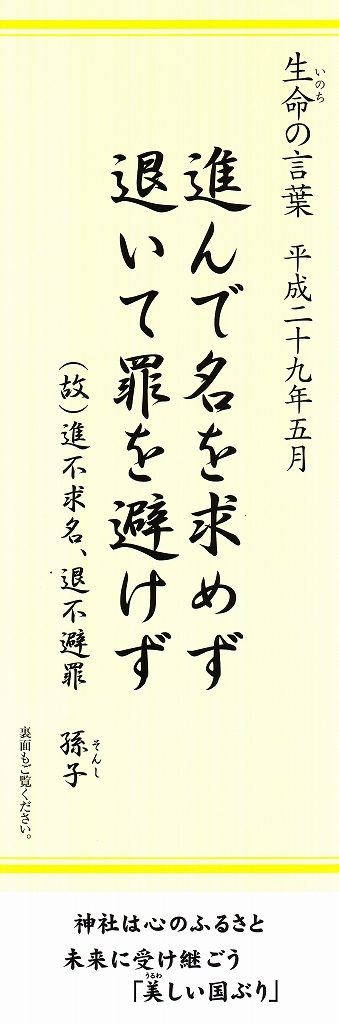 生命の言葉　平成二十九年五月
いのち
進んで名を求めず
退いて罪を避けず
（故）進不求名、退不避罪　孫子
そんし
裏面もご覧ください。
神社は心のふるさと
未来に受け継ごう
「美しい国ぶり」
うるわ